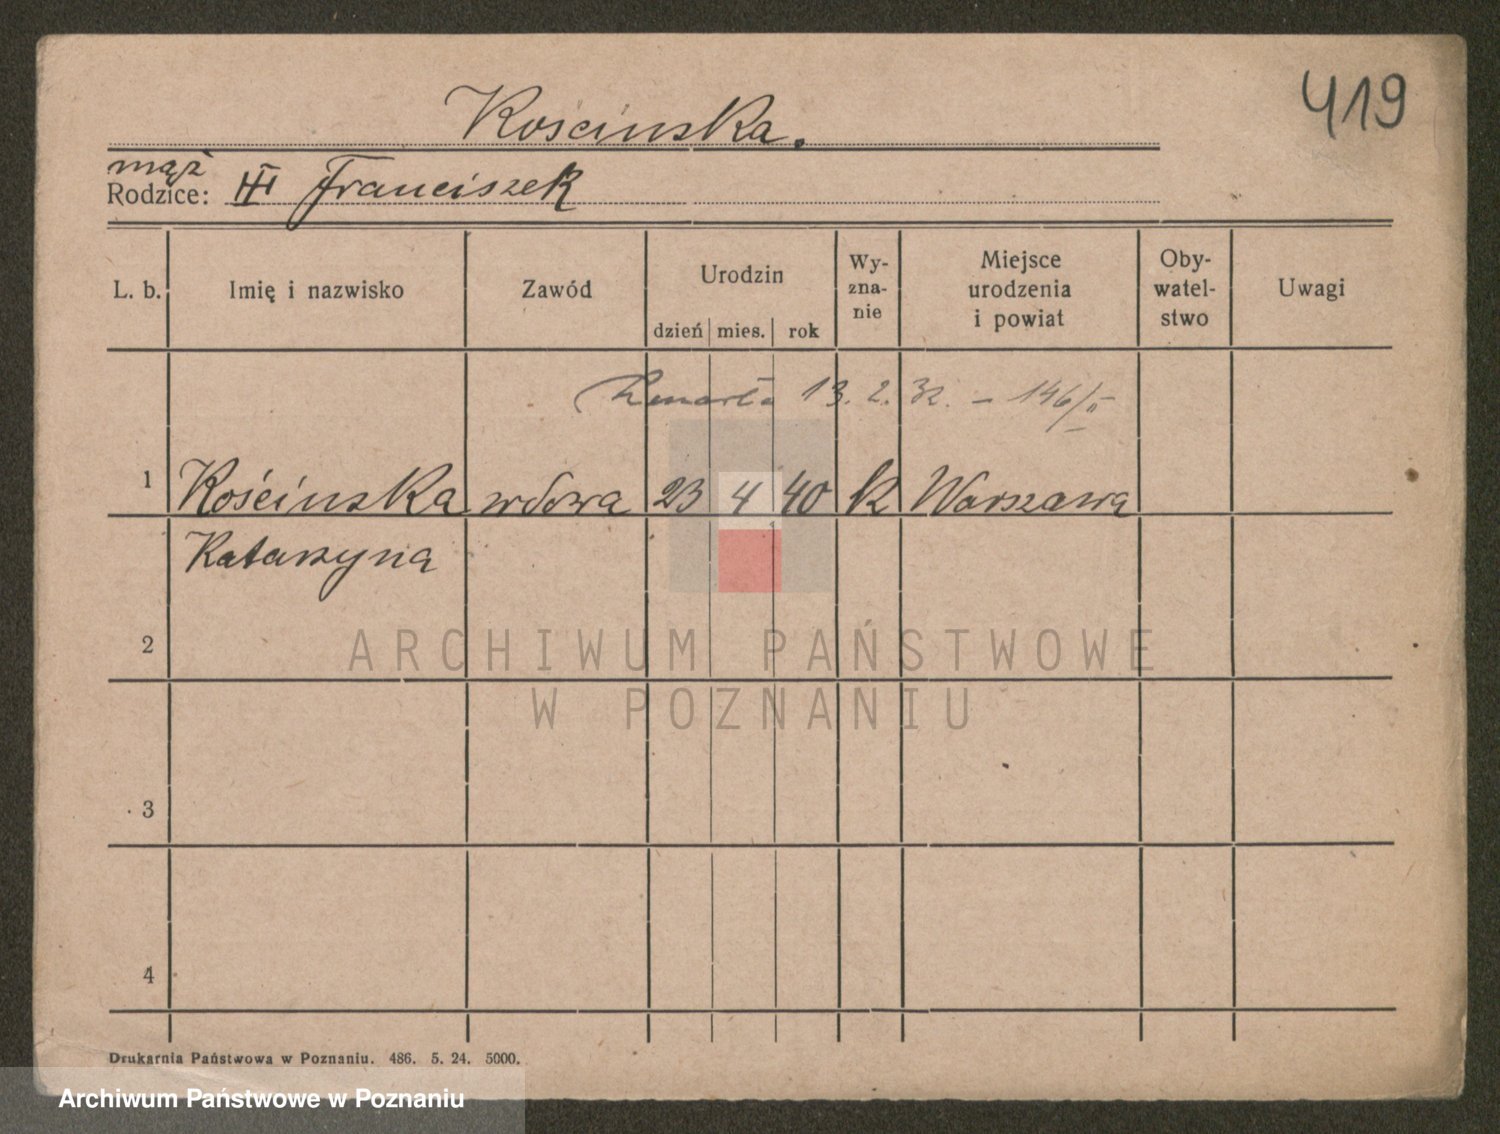 419
Kościnska.
mąż
Rodzice: Franciszek
L. b. Imię i nazwisko Zawód Urodzin dzień mies. rok Wy-zna-nie Miejsce urodzenia i powiat Oby-watel-stwo Uwagi
Zmarła 13.2.32. – 146/II
1 Kościnska wdowa 23 4 40 k Warszawa
Katarzyna
2
ARCHIWUM PAŃSTWOWE
W POZNANIU
3
4
Drukarnia Państwowa w Poznaniu. 486. 5. 24. 5000.
Archiwum Państwowe w Poznaniu